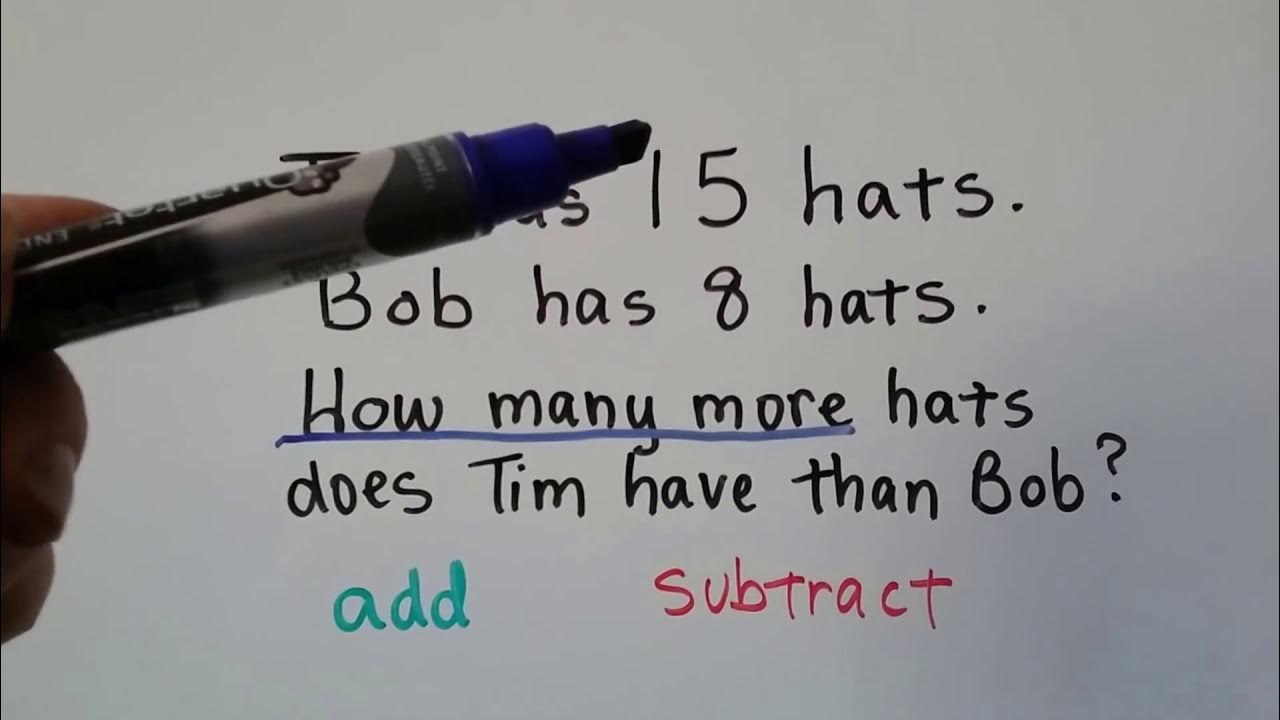 15 hats.
Bob has 8 hats.
How many more hats
does Tim have than Bob?
add subtract